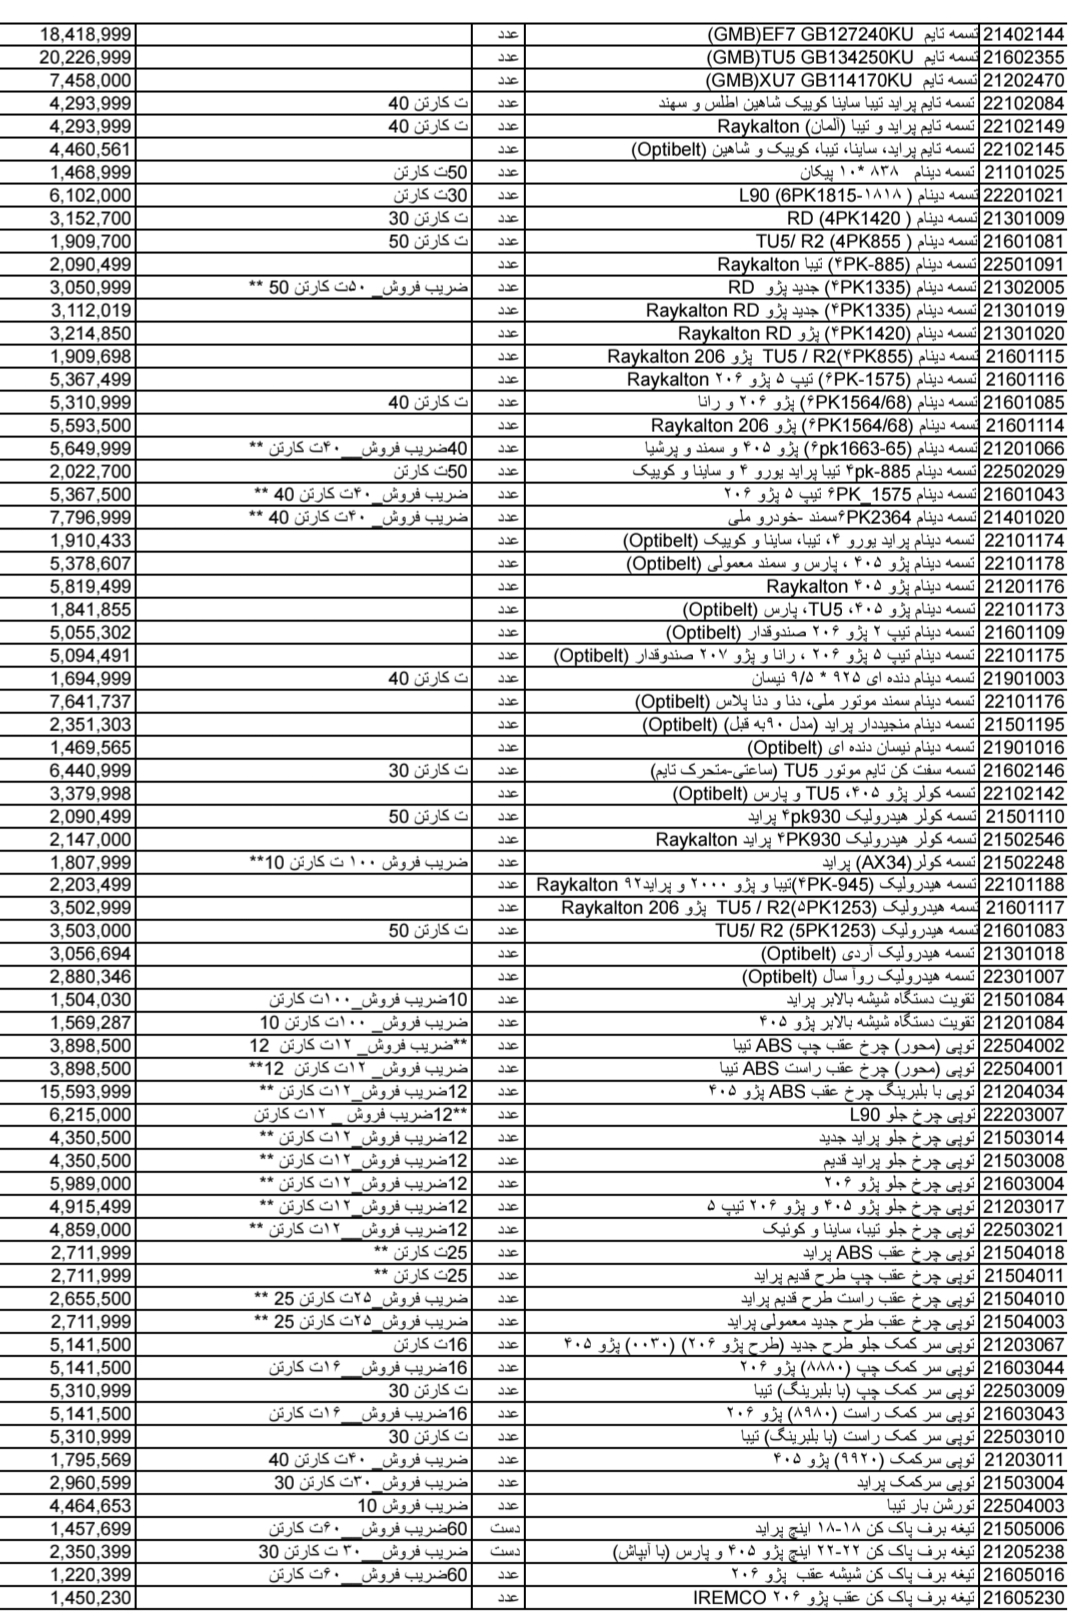 21402144 تسمه تایم EF7 GB127240KU(GMB) عدد 18,418,999
21602355 تسمه تایم TU5 GB134250KU(GMB) عدد 20,226,999
21202470 تسمه تایم XU7 GB114170KU(GMB) عدد 7,458,000
22102084 تسمه تایم پراید تیبا ساینا کوییک شاهین اطلس و سهند عدد ت کارتن 40 4,293,999
22102149 تسمه تایم پراید و تیبا (آلمان) Raykalton عدد ت کارتن 40 4,293,999
22102145 تسمه تایم پراید، ساینا، تیبا، کوییک و شاهین (Optibelt) عدد 4,460,561
21101025 تسمه دینام ۸۳۸ *۱۰ پیکان عدد 50ت کارتن 1,468,999
22201021 تسمه دینام ( ۱۸۱۸-6PK1815) L90 عدد 30ت کارتن 6,102,000
21301009 تسمه دینام ( 4PK1420) RD عدد ت کارتن 30 3,152,700
21601081 تسمه دینام ( 4PK855) TU5/ R2 عدد ت کارتن 50 1,909,700
22501091 تسمه دینام (۴PK-885) تیبا Raykalton عدد 2,090,499
21302005 تسمه دینام (۴PK1335) جدید پژو RD عدد ضریب فروش_ ۵۰ت کارتن 50 ** 3,050,999
21301019 تسمه دینام (۴PK1335) جدید پژو Raykalton RD عدد 3,112,019
21301020 تسمه دینام (۴PK1420) پژو Raykalton RD عدد 3,214,850
21601115 تسمه دینام TU5 / R2(۴PK855) پژو Raykalton 206 عدد 1,909,698
21601116 تسمه دینام (۶PK-1575) تیپ ۵ پژو ۲۰۶ Raykalton عدد 5,367,499
21601085 تسمه دینام (۶PK1564/68) پژو ۲۰۶ و رانا عدد ت کارتن 40 5,310,999
21601114 تسمه دینام (۶PK1564/68) پژو Raykalton 206 عدد 5,593,500
21201066 تسمه دینام (۶pk1663-65) پژو ۴۰۵ و سمند و پرشیا عدد 40ضریب فروش__۴۰ت کارتن ** 5,649,999
22502029 تسمه دینام ۴pk-885 تیبا پراید یورو ۴ و ساینا و کوییک عدد 50ت کارتن 2,022,700
21601043 تسمه دینام ۶PK_1575 تیپ ۵ پژو ۲۰۶ عدد ضریب فروش_ ۴۰ت کارتن 40 ** 5,367,500
21401020 تسمه دینام ۶PK2364سمند -خودرو ملی عدد ضریب فروش_ ۴۰ت کارتن 40 ** 7,796,999
22101174 تسمه دینام پراید یورو ۴، تیبا، ساینا و کوییک (Optibelt) عدد 1,910,433
22101178 تسمه دینام پژو ۴۰۵ ، پارس و سمند معمولی (Optibelt) عدد 5,378,607
21201176 تسمه دینام پژو ۴۰۵ Raykalton عدد 5,819,499
22101173 تسمه دینام پژو ۴۰۵، TU5، پارس (Optibelt) عدد 1,841,855
21601109 تسمه دینام تیپ ۲ پژو ۲۰۶ صندوقدار (Optibelt) عدد 5,055,302
22101175 تسمه دینام تیپ ۵ پژو ۲۰۶ ، رانا و پژو ۲۰۷ صندوقدار (Optibelt) عدد 5,094,491
21901003 تسمه دینام دنده ای ۹۲۵ * ۹/۵ نیسان عدد ت کارتن 40 1,694,999
22101176 تسمه دینام سمند موتور ملی، دنا و دنا پلاس (Optibelt) عدد 7,641,737
21501195 تسمه دینام منجیددار پراید (مدل ۹۰به قبل) (Optibelt) عدد 2,351,303
21901016 تسمه دینام نیسان دنده ای (Optibelt) عدد 1,469,565
21602146 تسمه سفت کن تایم موتور TU5 (ساعتی-متحرک تایم) عدد ت کارتن 30 6,440,999
22102142 تسمه کولر پژو ۴۰۵، TU5 و پارس (Optibelt) عدد 3,379,998
21501110 تسمه کولر هیدرولیک ۴pk930 پراید عدد ت کارتن 50 2,090,499
21502546 تسمه کولر هیدرولیک ۴PK930 پراید Raykalton عدد 2,147,000
21502248 تسمه کولر(AX34) پراید عدد ضریب فروش ۱۰۰ ت کارتن 10** 1,807,999
22101188 تسمه هیدرولیک (۴PK-945)تیبا و پژو ۲۰۰۰ و پراید۹۲ Raykalton عدد 2,203,499
21601117 تسمه هیدرولیک TU5 / R2(۵PK1253) پژو Raykalton 206 عدد 3,502,999
21601083 تسمه هیدرولیک TU5/ R2 (5PK1253) عدد ت کارتن 50 3,503,000
21301018 تسمه هیدرولیک آردی (Optibelt) عدد 3,056,694
22301007 تسمه هیدرولیک روآ سال (Optibelt) عدد 2,880,346
21501084 تقویت دستگاه شیشه بالابر پراید عدد 10ضریب فروش_۱۰۰ت کارتن 1,504,030
21201084 تقویت دستگاه شیشه بالابر پژو ۴۰۵ عدد ضریب فروش_ ۱۰۰ت کارتن 10 1,569,287
22504002 توپی (محور) چرخ عقب چپ ABS تیبا عدد **ضریب فروش_ ۱۲ت کارتن 12 3,898,500
22504001 توپی (محور) چرخ عقب راست ABS تیبا عدد ضریب فروش_ ۱۲ت کارتن 12** 3,898,500
21204034 توپی با بلبرینگ چرخ عقب ABS پژو ۴۰۵ عدد 12ضریب فروش_۱۲ت کارتن ** 15,593,999
22203007 توپی چرخ جلو L90 عدد **12ضریب فروش _ ۱۲ت کارتن 6,215,000
21503014 توپی چرخ جلو پراید جدید عدد 12ضریب فروش_۱۲ت کارتن ** 4,350,500
21503008 توپی چرخ جلو پراید قدیم عدد 12ضریب فروش_۱۲ت کارتن ** 4,350,500
21603004 توپی چرخ جلو پژو ۲۰۶ عدد 12ضریب فروش_۱۲ت کارتن ** 5,989,000
21203017 توپی چرخ جلو پژو ۴۰۵ و پژو ۲۰۶ تیپ ۵ عدد 12ضریب فروش_۱۲ت کارتن ** 4,915,499
22503021 توپی چرخ جلو تیبا، ساینا و کوئیک عدد 12ضریب فروش__۱۲ت کارتن ** 4,859,000
21504018 توپی چرخ عقب ABS پراید عدد 25ت کارتن ** 2,711,999
21504011 توپی چرخ عقب چپ طرح قدیم پراید عدد 25ت کارتن ** 2,711,999
21504010 توپی چرخ عقب راست طرح قدیم پراید عدد ضریب فروش_۲۵ت کارتن 25 ** 2,655,500
21504003 توپی چرخ عقب طرح جدید معمولی پراید عدد ضریب فروش_۲۵ت کارتن 25 ** 2,711,999
21203067 توپی سر کمک جلو طرح جدید (طرح پژو ۲۰۶) (۰۰۳۰) پژو ۴۰۵ عدد 16ت کارتن 5,141,500
21603044 توپی سر کمک چپ (۸۸۸۰) پژو ۲۰۶ عدد 16ضریب فروش__۱۶ت کارتن 5,141,500
22503009 توپی سر کمک چپ (با بلبرینگ) تیبا عدد ت کارتن 30 5,310,999
21603043 توپی سر کمک راست (۸۹۸۰) پژو ۲۰۶ عدد 16ضریب فروش__۱۶ت کارتن 5,141,500
22503010 توپی سر کمک راست (با بلبرینگ) تیبا عدد ت کارتن 30 5,310,999
21203011 توپی سرکمک (۹۹۲۰) پژو ۴۰۵ عدد ضریب فروش_ ۴۰ت کارتن 40 1,795,569
21503004 توپی سرکمک پراید عدد ضریب فروش_ ۳۰ت کارتن 30 2,960,599
22504003 تورشن بار تیبا عدد ضریب فروش 10 4,464,653
21505006 تیغه برف پاک کن ۱۸-۱۸ اینچ پراید دست 60ضریب فروش__۶۰ت کارتن 1,457,699
21205238 تیغه برف پاک کن ۲۲-۲۲ اینچ پژو ۴۰۵ و پارس (با آبپاش) دست ضریب فروش_ ۳۰ ت کارتن 30 2,350,399
21605016 تیغه برف پاک کن شیشه عقب پژو ۲۰۶ عدد 60ضریب فروش__۶۰ت کارتن 1,220,399
21605230 تیغه برف پاک کن عقب پژو ۲۰۶ IREMCO عدد 1,450,230